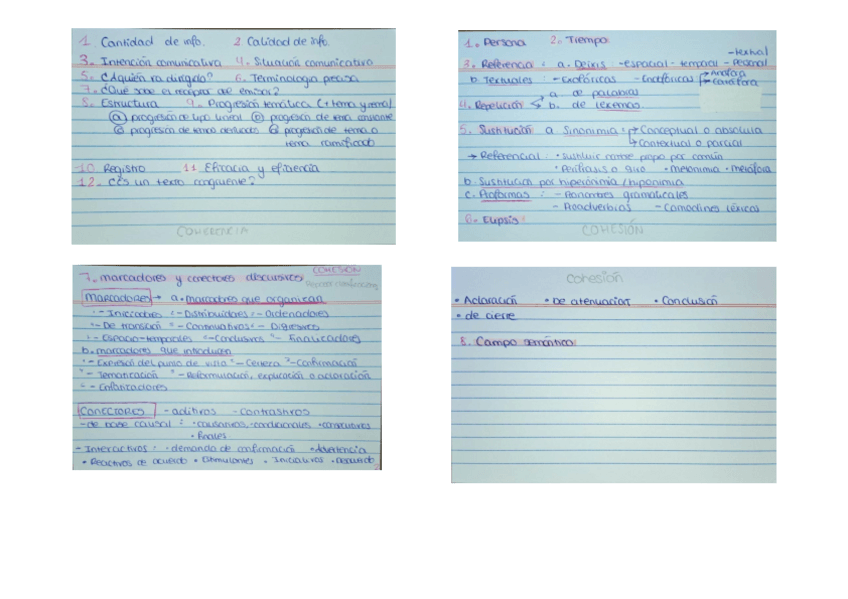 1 Cantidad de info. 2 Calidad de info.
3. Intención comunicativa 4. Situación comunicativa
5. ¿A quién va dirigido? 6. Terminología precisa
7. ¿Qué sabe el receptor del emisor?
8. Estructura 9. Progresión temática (+ tema y rema)
a progresión de tipo lineal b progresión de tema constante
c progresión de temas derivados d progresión de tema o
tema ramificado
10 Registro 11 Eficacia y eficiencia
12. ¿Es un texto congruente?
COHERENCIA
1. Persona 2. Tiempo
- textual
3. Referencia: a. Deixis - espacial - temporal - Personal
b. Textuales: - Exofóricas - Endofóricas → Anáfora
→ Catáfora
a. de palabras
4. Repetición b. de lexemas
5. Sustitución a Sinonimia: → Conceptual o absoluta
→ Contextual o parcial
→ Referencial: • sustituir nombre propio por común
• Perífrasis o giro • metonimia • metáfora
b. Sustitución por hiperonimia / hiponimia
c. Proformas: - Pronombres gramaticales
- Proadverbios - Comodines léxicos
6. Elipsis
COHESIÓN
COHESIÓN
7. marcadores y conectores discursivos
MARCADORES → a. marcadores que organizan
- Iniciadores - Distribuidores - Ordenadores
- De transición - Continuativos - Digresivos
- Espacio-temporales - Conclusivos - Finalizadores
b. marcadores que introducen
- Expresión del punto de vista - Certeza - Confirmación
- Tematización - Reformulación, explicación o aclaración
- Enfatizadores
CONECTORES - aditivos - contrastivos
- de base causal: • causativos, • condicionales, • consecutivos
• finales
- Interactivos: • demanda de confirmación • advertencia
• Reactivos de acuerdo • Estimulantes • Iniciativos • desacuerdo
Cohesión
• Aclaración • De atenuación • Conclusión
• de cierre
8. Campo semántico